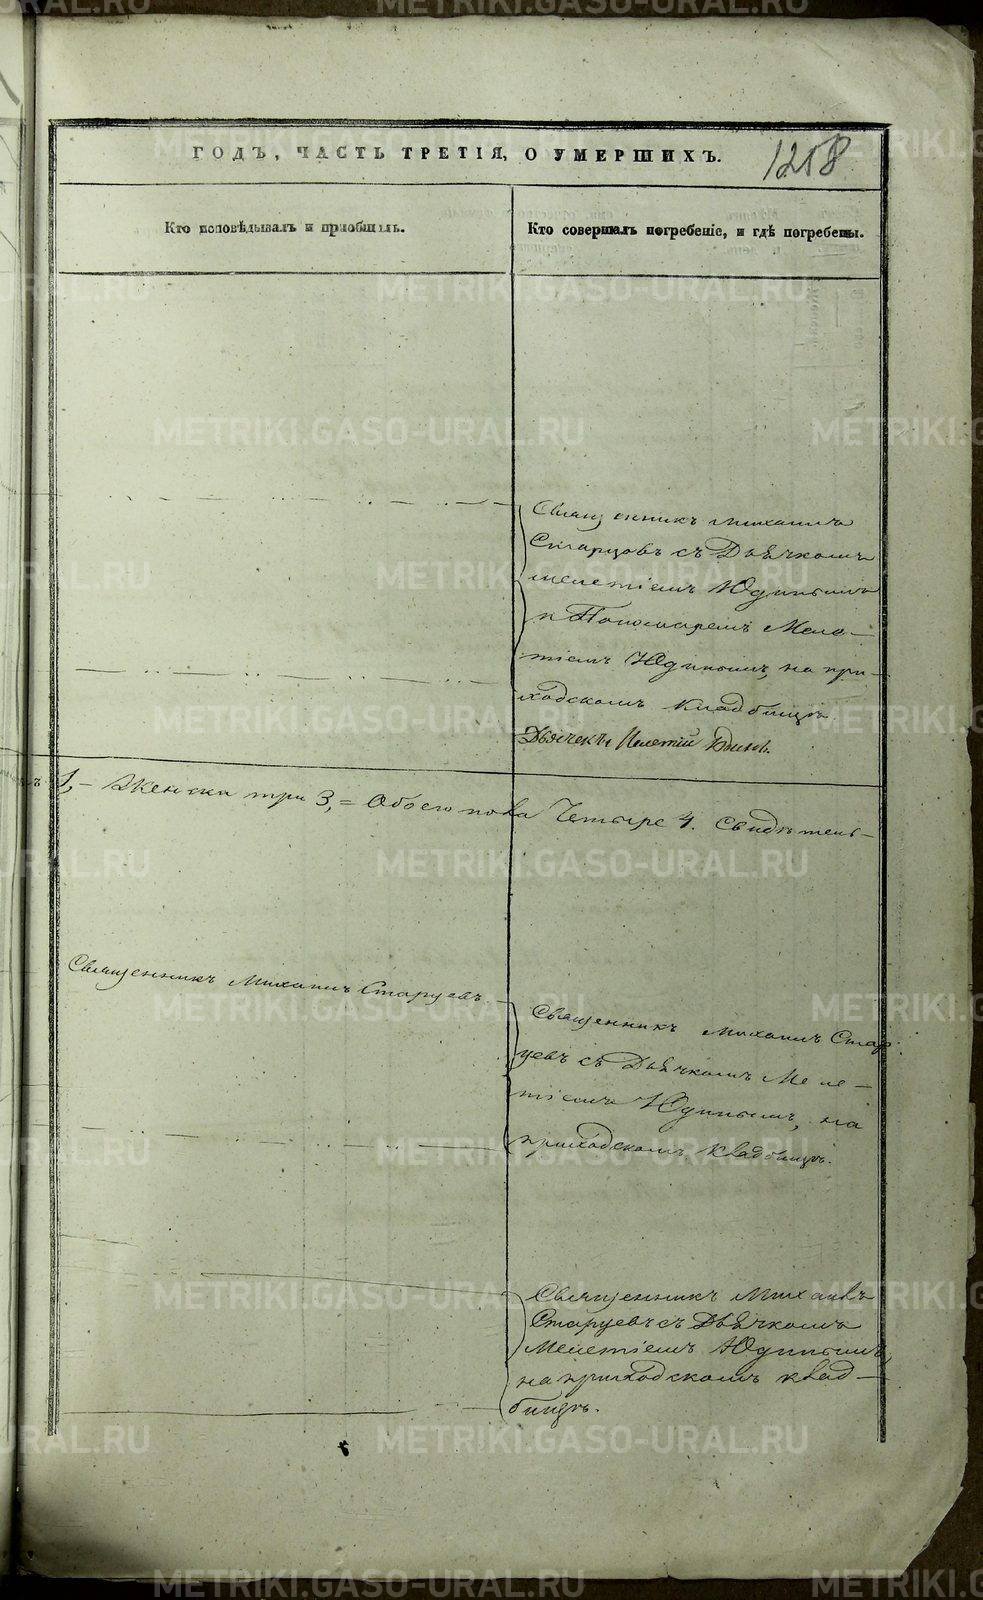 ГОДЪ, ЧАСТЬ ТРЕТІЯ, О УМЕРШИХЪ.
1258
Кто исповѣдывалъ и пріобщилъ.
Кто совершалъ погребеніе, и гдѣ погребены.
Священникъ Михаилъ
Старцовъ съ Дьячкомъ
Мелетіемъ Юдинымъ
и Пономаремъ Меле-
тіемъ Юдинымъ, на при-
ходскомъ кладбищѣ.
Дьячекъ Мелетій Юдинъ.
1, – Женска три 3, = Обоего пола Четыре 4. Свидѣтель-
Священникъ Михаилъ Старцевъ.
Священникъ Михаилъ Стар-
цевъ съ Дьячкомъ Меле-
тіемъ Юдинымъ, на
приходскомъ кладбищѣ.
Священникъ Михаилъ
Старцевъ съ Дьячкомъ
Мелетіемъ Юдинымъ,
на приходскомъ клад-
бищѣ.
METRIKI.GASO-URAL.RU